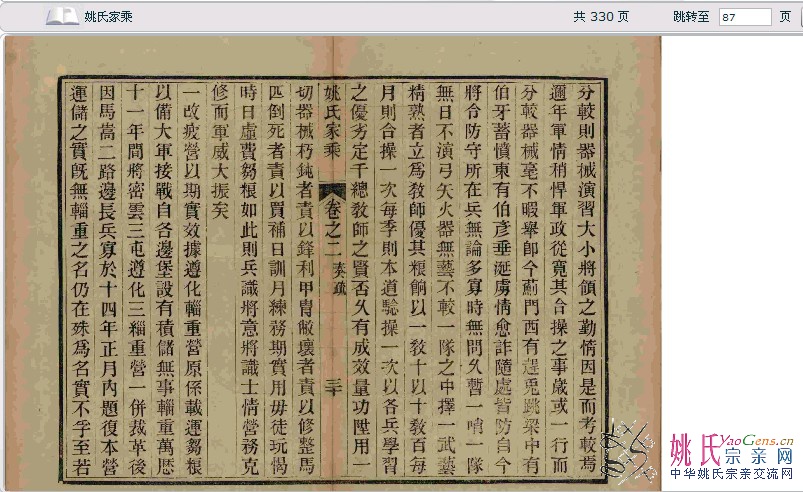 姚氏家乘
共 330 页
跳转至 87 页
分較則器械演習大小將領之勤惰因是而考較焉
邇年軍情稍悍軍政從寬其合操之事歲或一行而
分較器械毫不暇舉卽今薊門西有逞兎跳梁中有
伯牙蓄憤東有伯彥垂涎虜情愈詐隨處皆防自今
將令防守所在兵無論多寡時無問久暫一哨一隊
無日不演弓矢火器無藝不較一隊之中擇一武藝
精熟者立爲敎師優其粮餉以一敎十以十敎百每
月則合操一次每季則本道騐操一次以各兵學習
之優劣定千總敎師之賢否久有成效量功陞用一
姚氏家乘
卷之二 奏疏
三十
切器械朽鈍者責以鋒利甲冑敝壞者責以修整馬
匹倒死者責以買補日訓月練務期實用毋徒玩愒
時日虛費芻粮如此則兵識將意將識士情營務克
修而軍威大振矣
一改疲營以期實效據遵化輜重營原係載運芻粮
以備大軍接戰自各邊堡設有積儲無事輜重萬厯
十一年間將密雲三屯遵化三輜重營一併裁革後
因馬嵩二路邊長兵寡於十四年正月內題復本營
運儲之實旣無輜重之名仍在殊爲名實不孚至若
姚氏YaoGens.cn
宗亲网
中华姚氏宗亲交流网